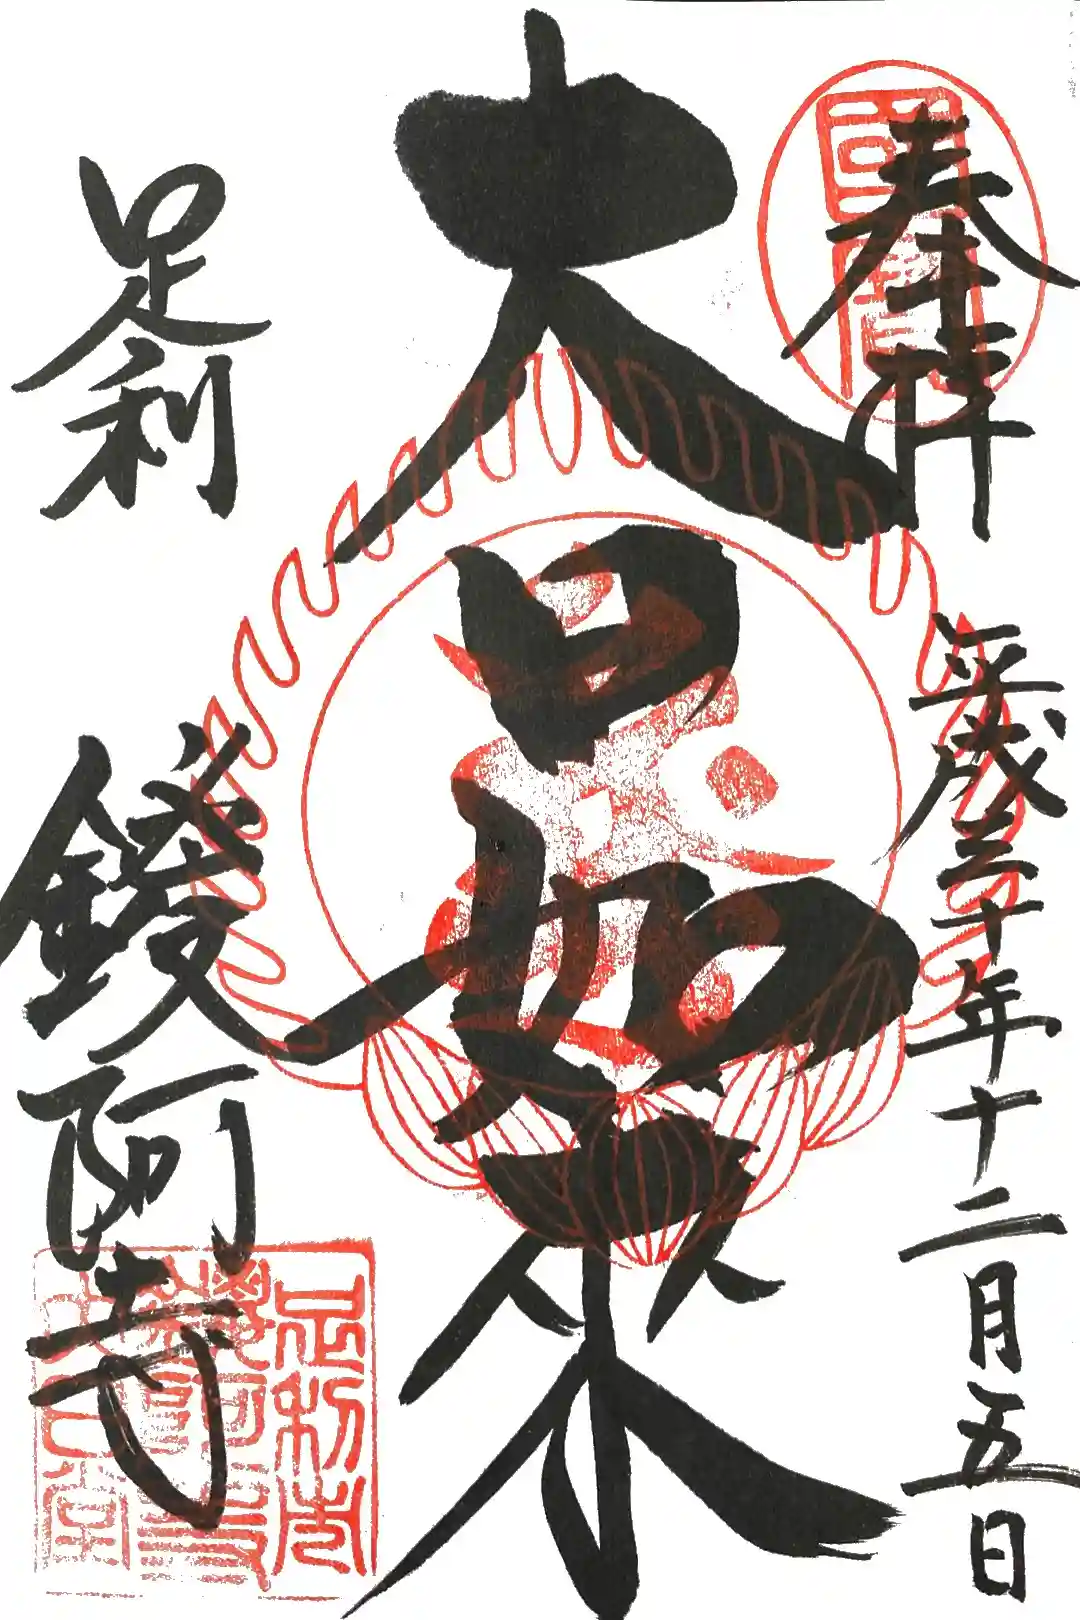 奉拝
平成三十年十二月五日
大日如来
足利
鑁阿寺
國寳
足利市
鑁阿寺
大日堂